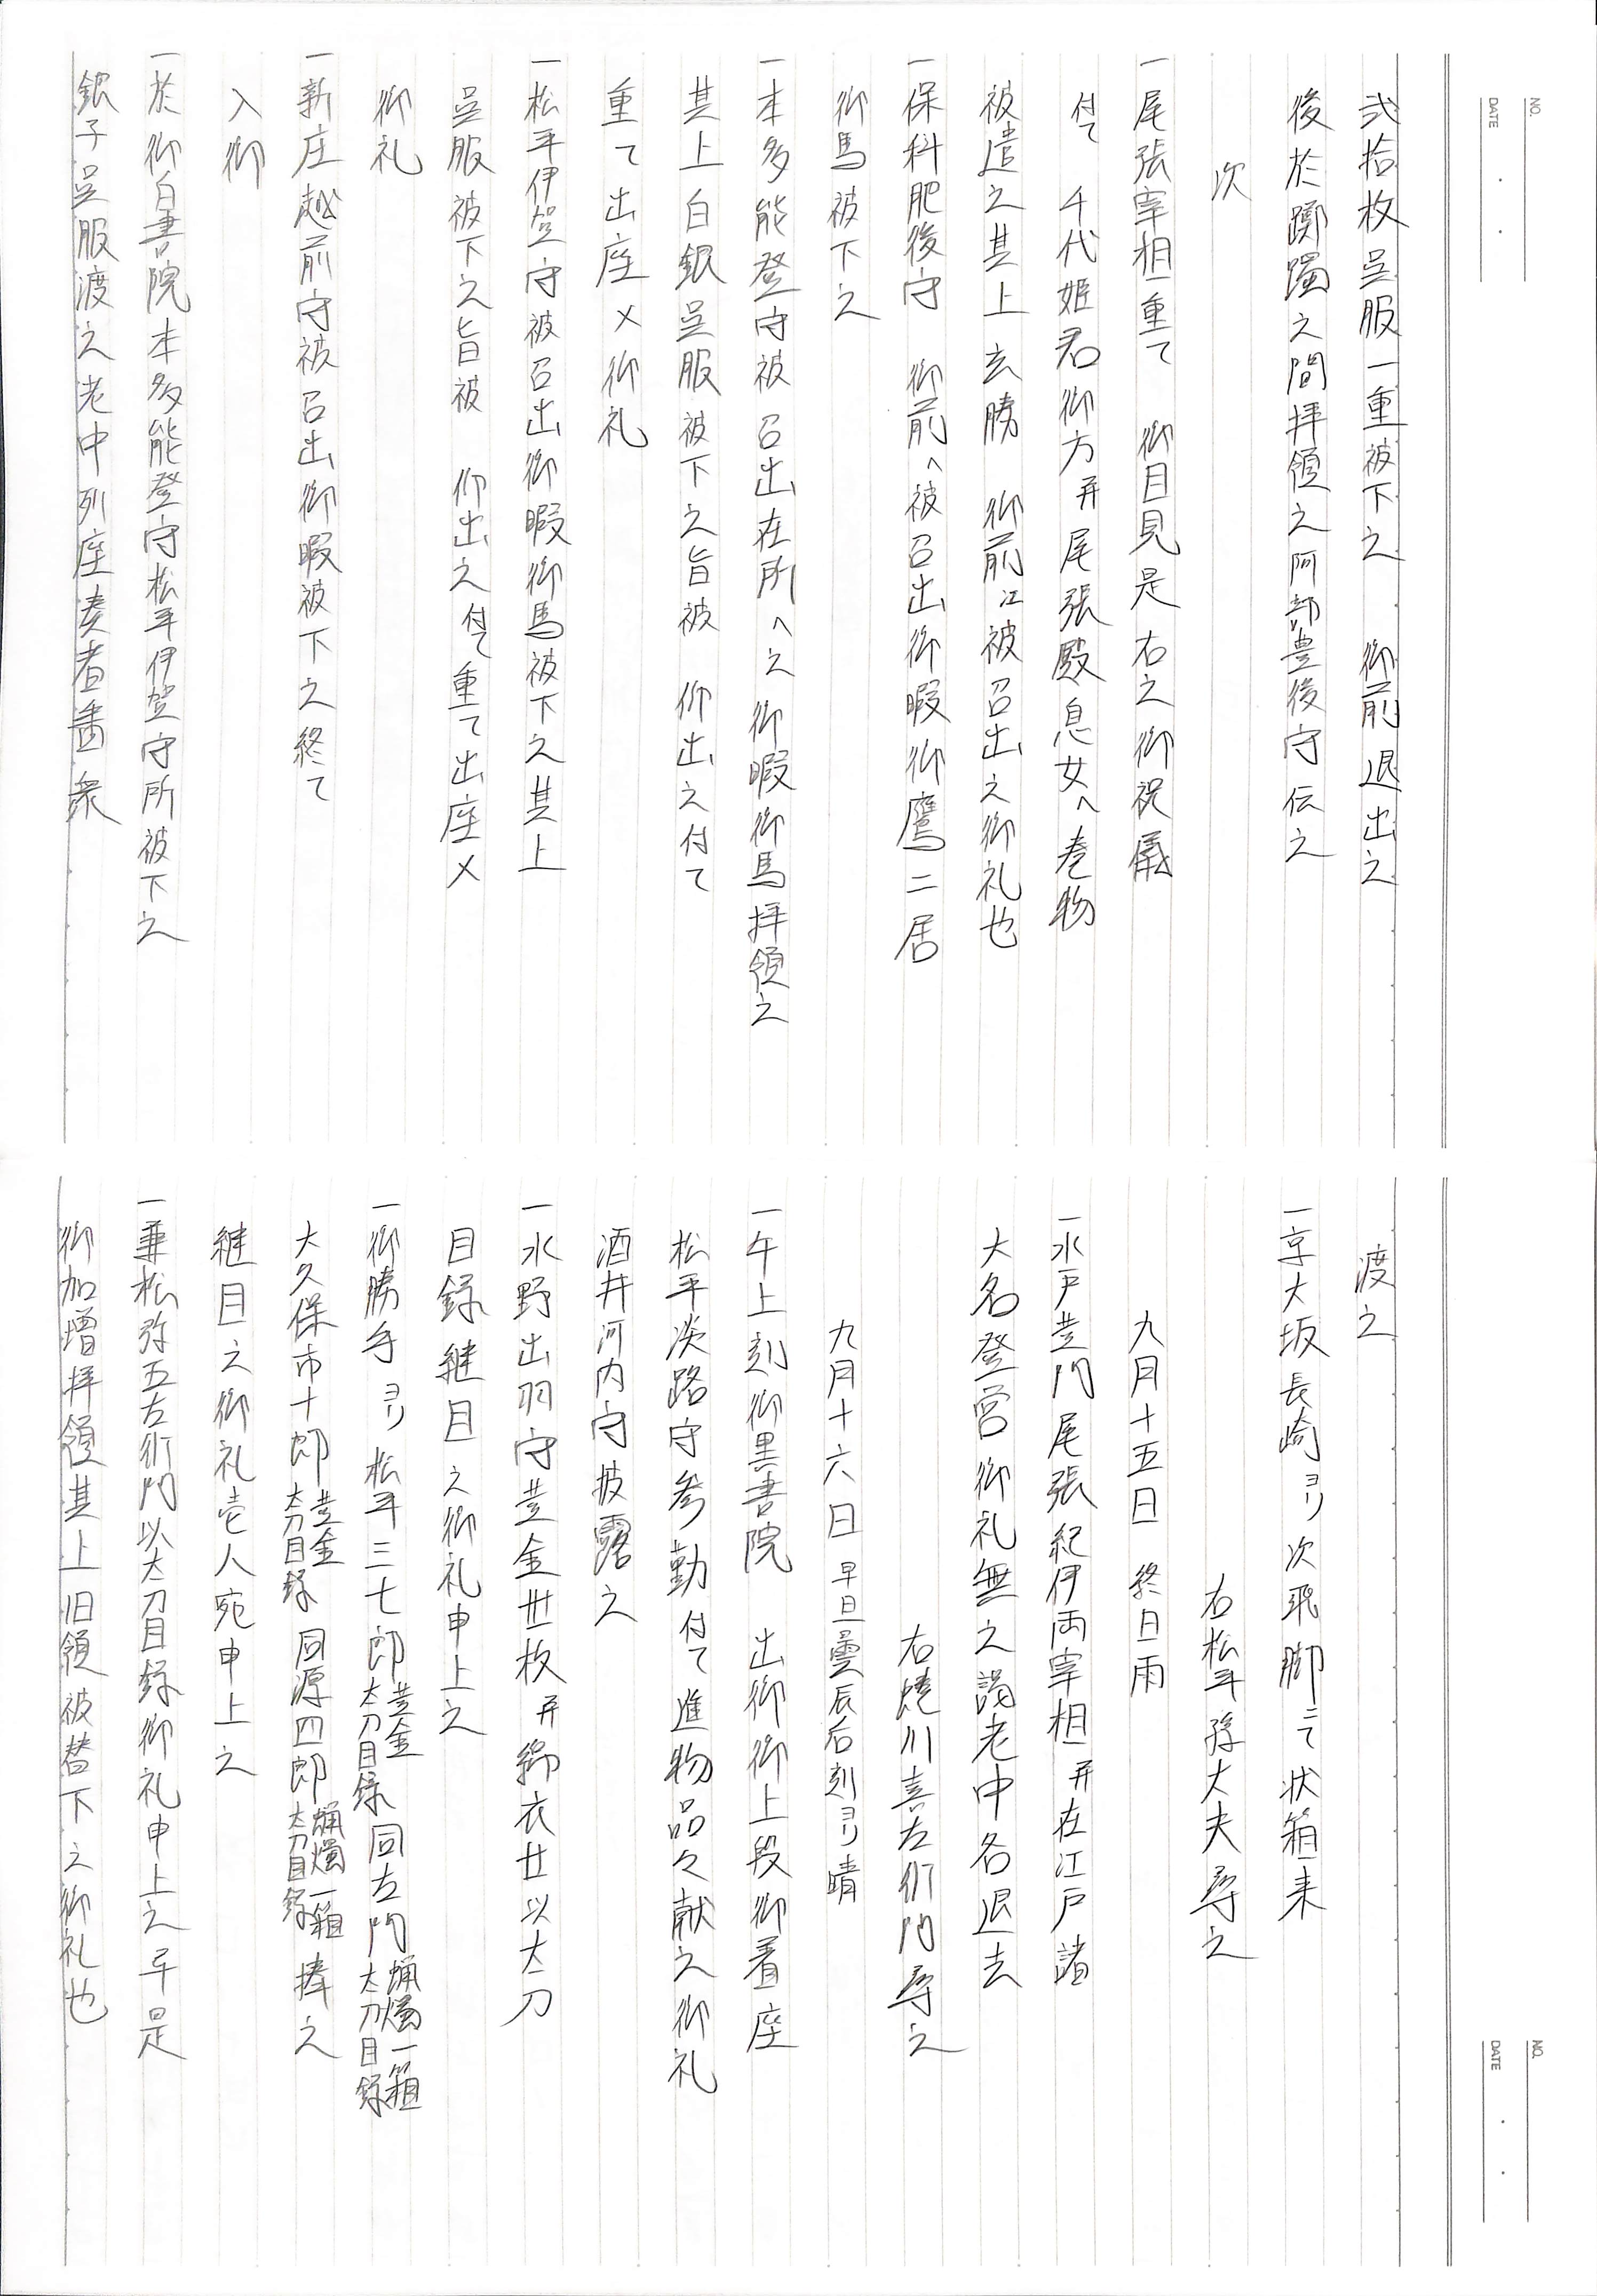 NO.
DATE
弐拾枚呉服一重被下之　御前退出之
後於躑躅之間拝領之阿部豊後守伝之
次
一尾張宰相重て　御目見是右之御祝儀
付て　千代姫君御方并尾張殿息女へ巻物
被遣之其上玄勝　御前江被召出之御礼也
一保科肥後守　御前へ被召出御暇御鷹二居
御馬被下之
一本多能登守被召出在所へ之御暇御馬拝領之
其上白銀呉服被下之旨被　仰出之付て
重て出座〆御礼
一松平伊賀守被召出御暇御馬被下之其上
呉服被下之旨被　仰出之付て重て出座〆
御礼
一新庄越前守被召出御暇被下之終て
入御
一於御白書院本多能登守松平伊賀守所被下之
銀子呉服渡之老中列座奏者番衆
NO.
DATE
渡之
一京大坂長崎ヨリ次飛脚ニて状箱来
右松平孫大夫尋之
九月十五日　終日雨
一水戸黄門尾張紀伊両宰相并在江戸諸
大名登営御礼無之謁老中各退去
右焼川喜左衛門尋之
九月十六日　早旦曇辰后刻ヨリ晴
一午上刻御黒書院　出御御上段御着座
松平淡路守参勤付て進物品々献之御礼
酒井河内守披露之
一水野出羽守黄金卅枚并綿衣廿以太刀
目録継目之御礼申上之
一御勝手ヨリ松平三七郎黄金太刀目録同左門蝋燭一箱太刀目録
大久保市十郎黄金太刀目録同源四郎蝋燭一箱太刀目録捧之
継目之御礼壱人宛申上之
一兼松弥五左衛門以太刀目録御礼申上之早是
御加増拝領其上旧領被替下之御礼也